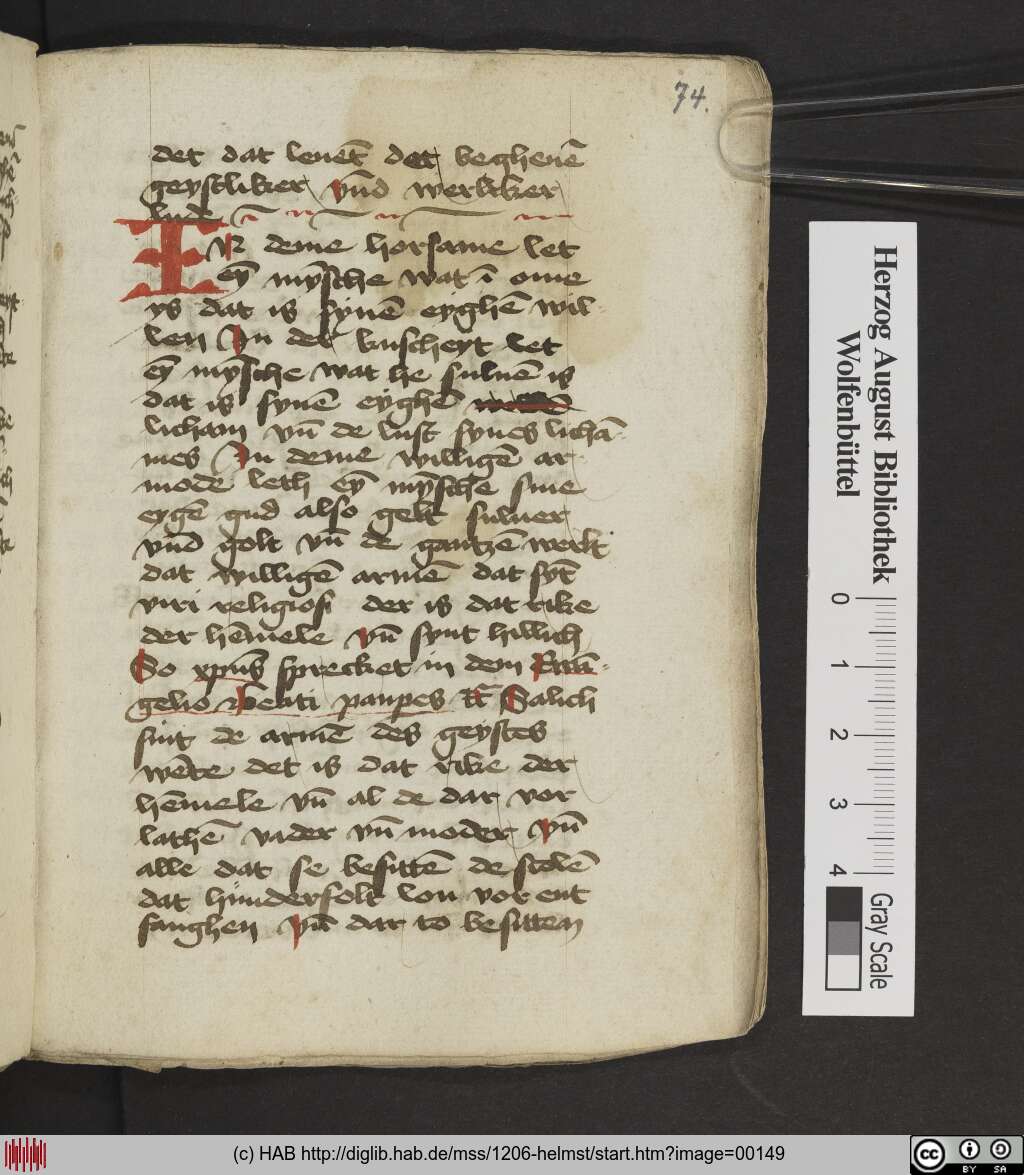 74.
det dat leuēt der begheuē
geystliker vn̄d werltker
lude
IN deme horsame let
eȳ mȳsche wat ī ome
ys dat is synē eyghē wil-
len Jn der kuscheyt let
eȳ mȳsche wat he suluē is
dat is synē eyghē
licham vn̄ de lust synes lichā-
mes Jn deme willigē ar-
mode leth eȳ mȳsche sine
eygē gud also gelt suluer
vn̄d golt vn̄ de gantzē werlt
dat willigē armē dat sȳt
viri religiosi der is dat rike
der hēmele vn̄ synt hillich
So xp̄us sprecket in dem Ewā-
gelio Beati paup̄es etc̄ Salich
sint de armē des geystes
wēte det is dat rike der
hēmele vn̄ al de dar vor
lathē vader vn̄ moder vn̄
alle dat se besittē de scolē
dat hunderfolt lon vor ent
fanghen vn̄ dar to besitten
Herzog August Bibliothek
Wolfenbüttel
0 1 2 3 4
Gray Scale
(c) HAB http://diglib.hab.de/mss/1206-helmst/start.htm?image=00149
cc BY SA